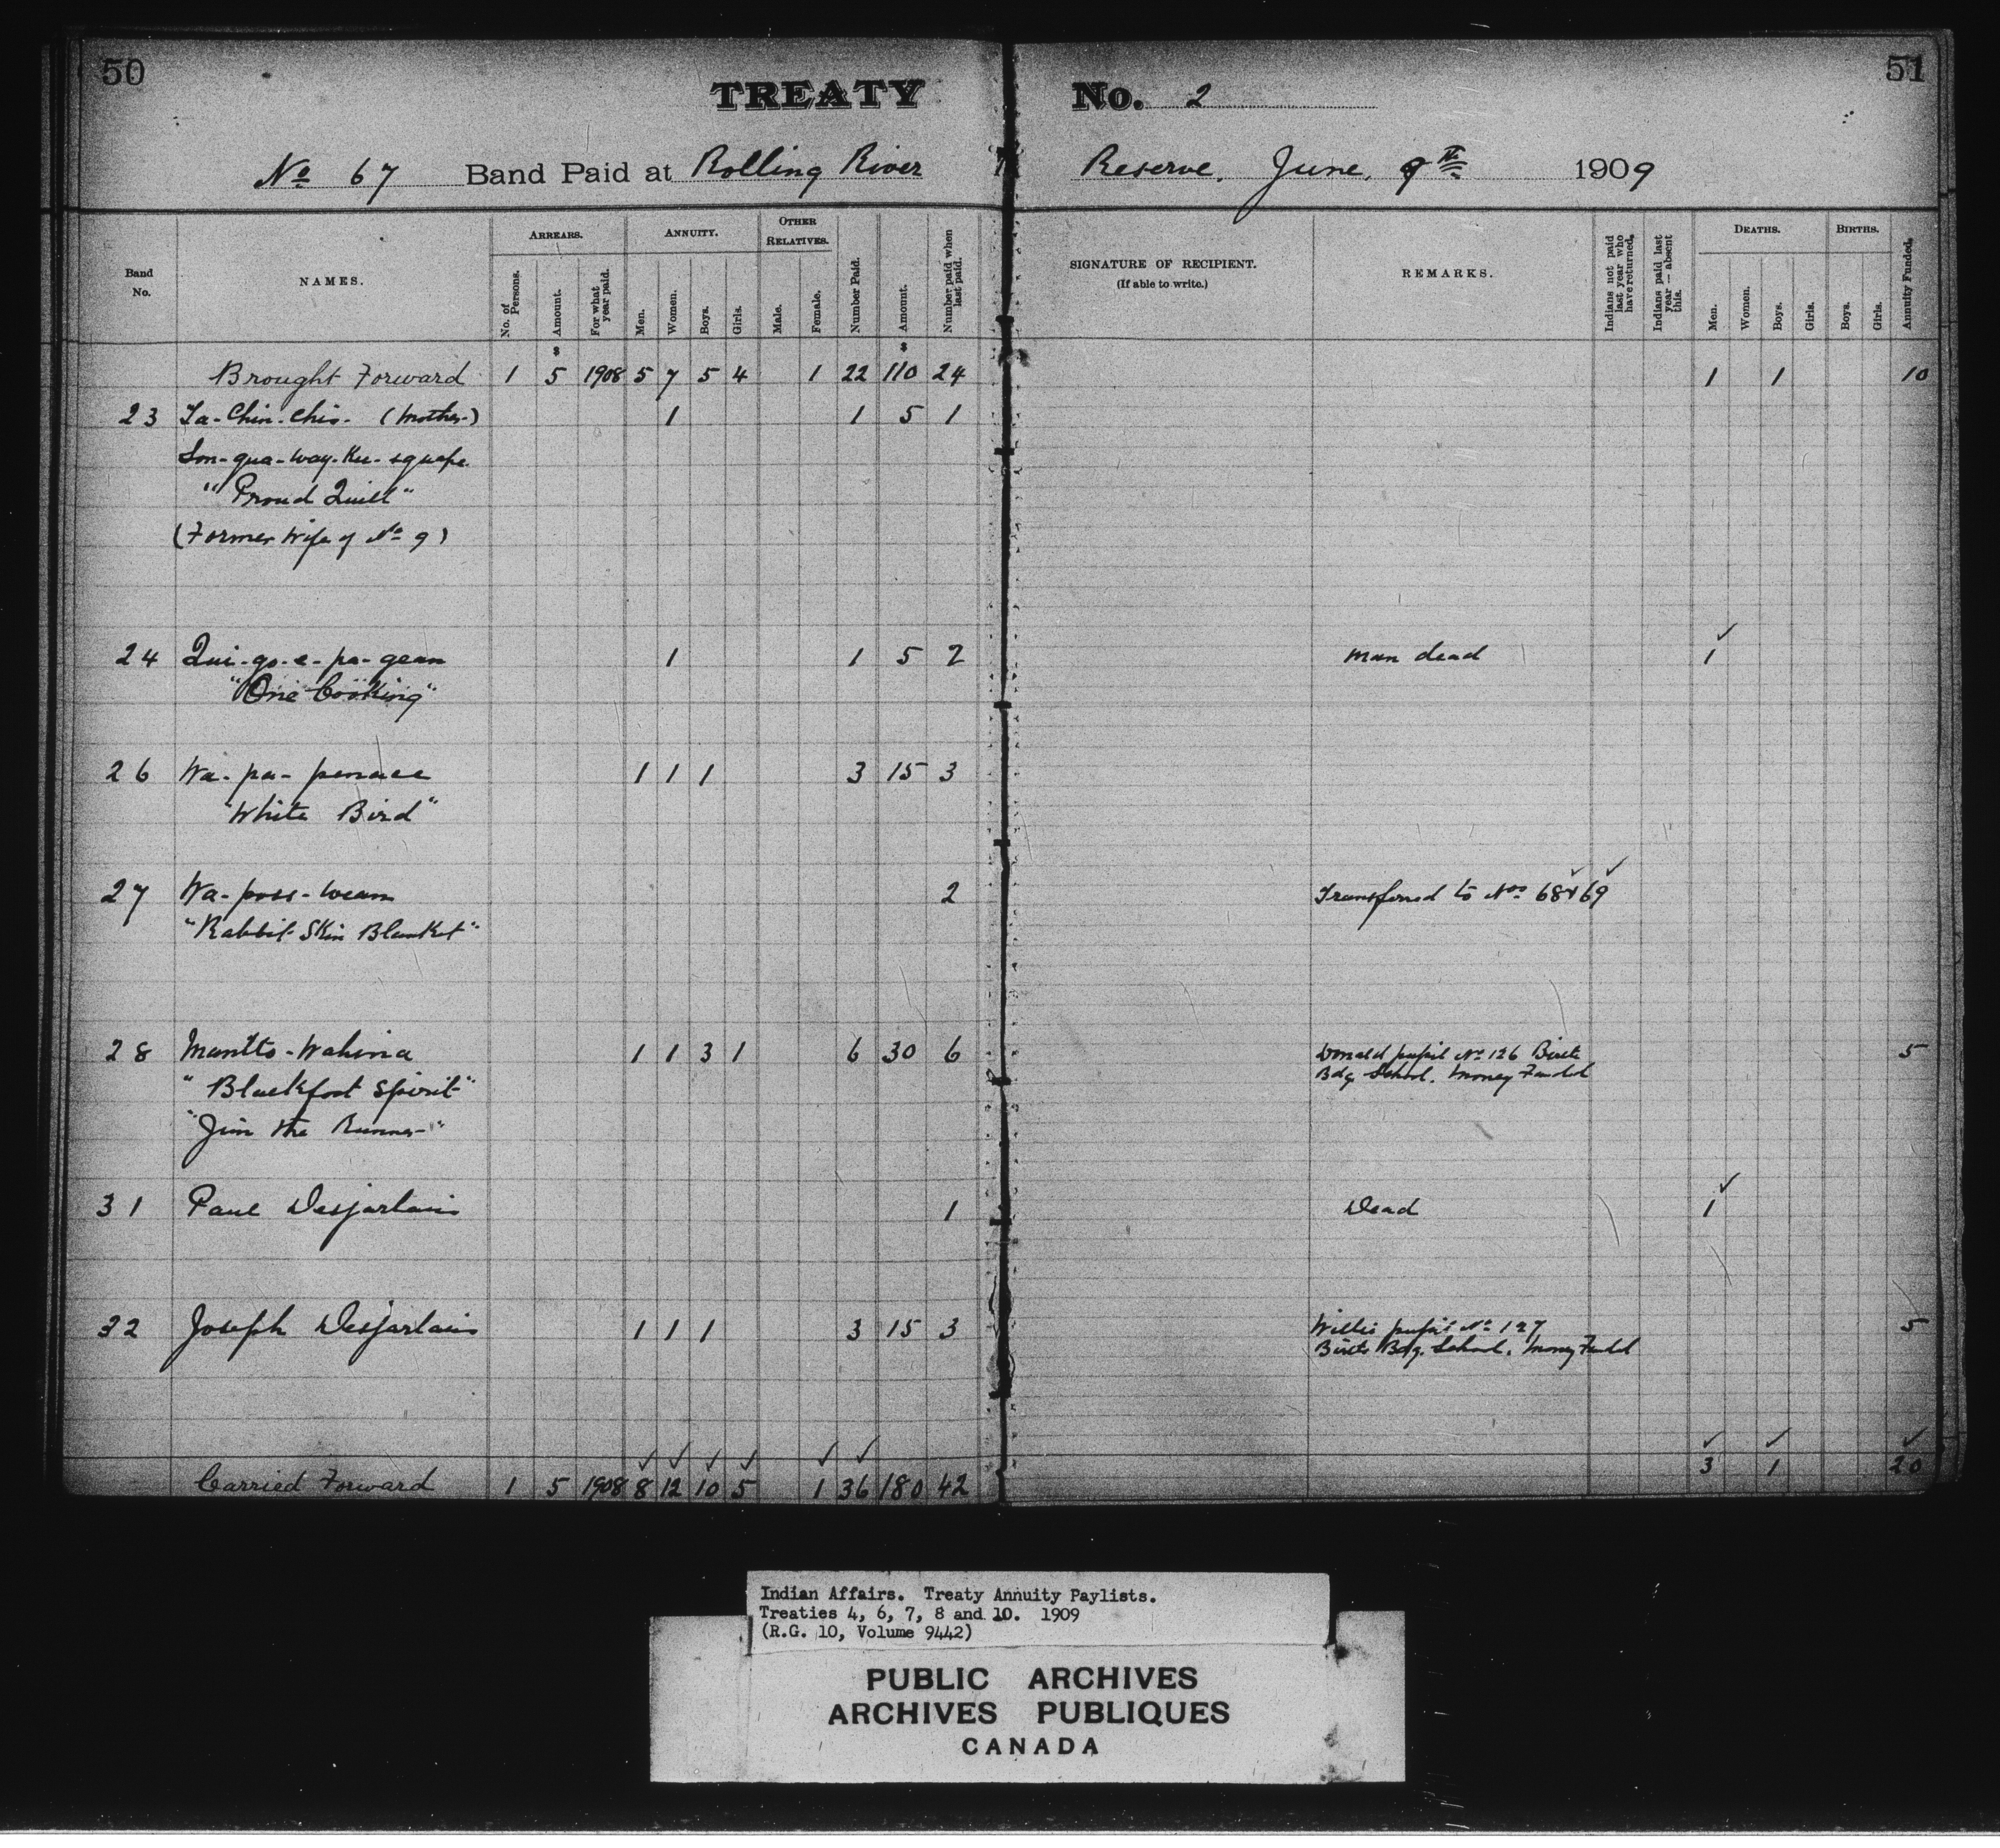 50
51
TREATY No. 2
No 67 Band Paid at Rolling River Reserve, June, 9th 1909
Band No.
NAMES.
ARREARS.
No. of Persons.
Amount.
For what year paid.
ANNUITY.
Men.
Women.
Boys.
Girls.
OTHER RELATIVES.
Male.
Female.
Number Paid.
Amount.
Number paid when last paid.
SIGNATURE OF RECIPIENT.
(If able to write.)
REMARKS.
Indians not paid last year who have returned.
Indians paid last year — absent this.
DEATHS.
Men.
Women.
Boys.
Girls.
BIRTHS.
Boys.
Girls.
Annuity Funded.
$ $
Brought Forward 1 5 1908 5 7 5 4 1 22 110 24 1 1 10
23 Ta-Chin-Chis- (Mother) 1 1 5 1
"Proud Quill"
(Former Wife of No 9)
24 Qui-go-e-pa-gean 1 1 5 2 man dead 1
"One Cooking"
26 Wa-pa-penace 1 1 1 3 15 3
"White Bird"
27 Wa-poss-wean 2 Transferred to Nos 68 & 69
"Rabbit Skin Blanket"
28 Mantto-Wahina 1 1 3 1 6 30 6 Donald pupil No 126 Birtle 5
Bdg. School. Money Funded
"Blackfoot Spirit"
"Jim the Runner"
31 Paul Desjarlais 1 Dead 1
32 Joseph Desjarlais 1 1 1 3 15 3 Willis pupil No 127 5
Birtle Bdg. School. Money Funded
Carried Forward 1 5 1908 8 12 10 5 1 36 180 42 3 1 20
Indian Affairs. Treaty Annuity Paylists.
Treaties 4, 6, 7, 8 and 10. 1909
(R.G. 10, Volume 9442)
PUBLIC ARCHIVES
ARCHIVES PUBLIQUES
CANADA